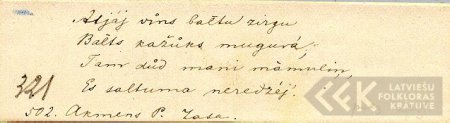 Atjāj vīns baltu zirgu
Balts kažūks mugurá,
Tam dūd mani māmulin,
Es saltuma neredzēj.
321
502. Akmens P. Zasa.
LATVIEŠU
FOLKLORAS
KRĀTUVE